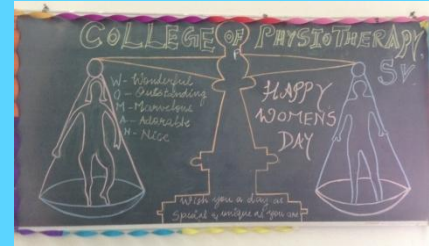 COLLEGE OF PHYSIOTHERAPY
Sv
W- Wonderful
O- Outstanding
M- Marvelous
A- Adorable
N- Nice
HAPPY
WOMEN'S
DAY
Wish you a day as
Special & unique as you are